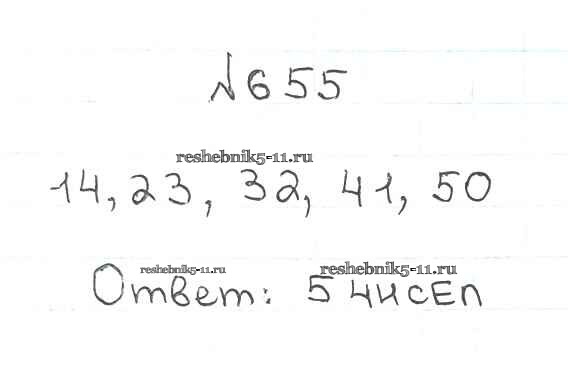 №655
reshebnik5-11.ru
14, 23, 32, 41, 50
reshebnik5-11.ru reshebnik5-11.ru
Ответ: 5 чисел